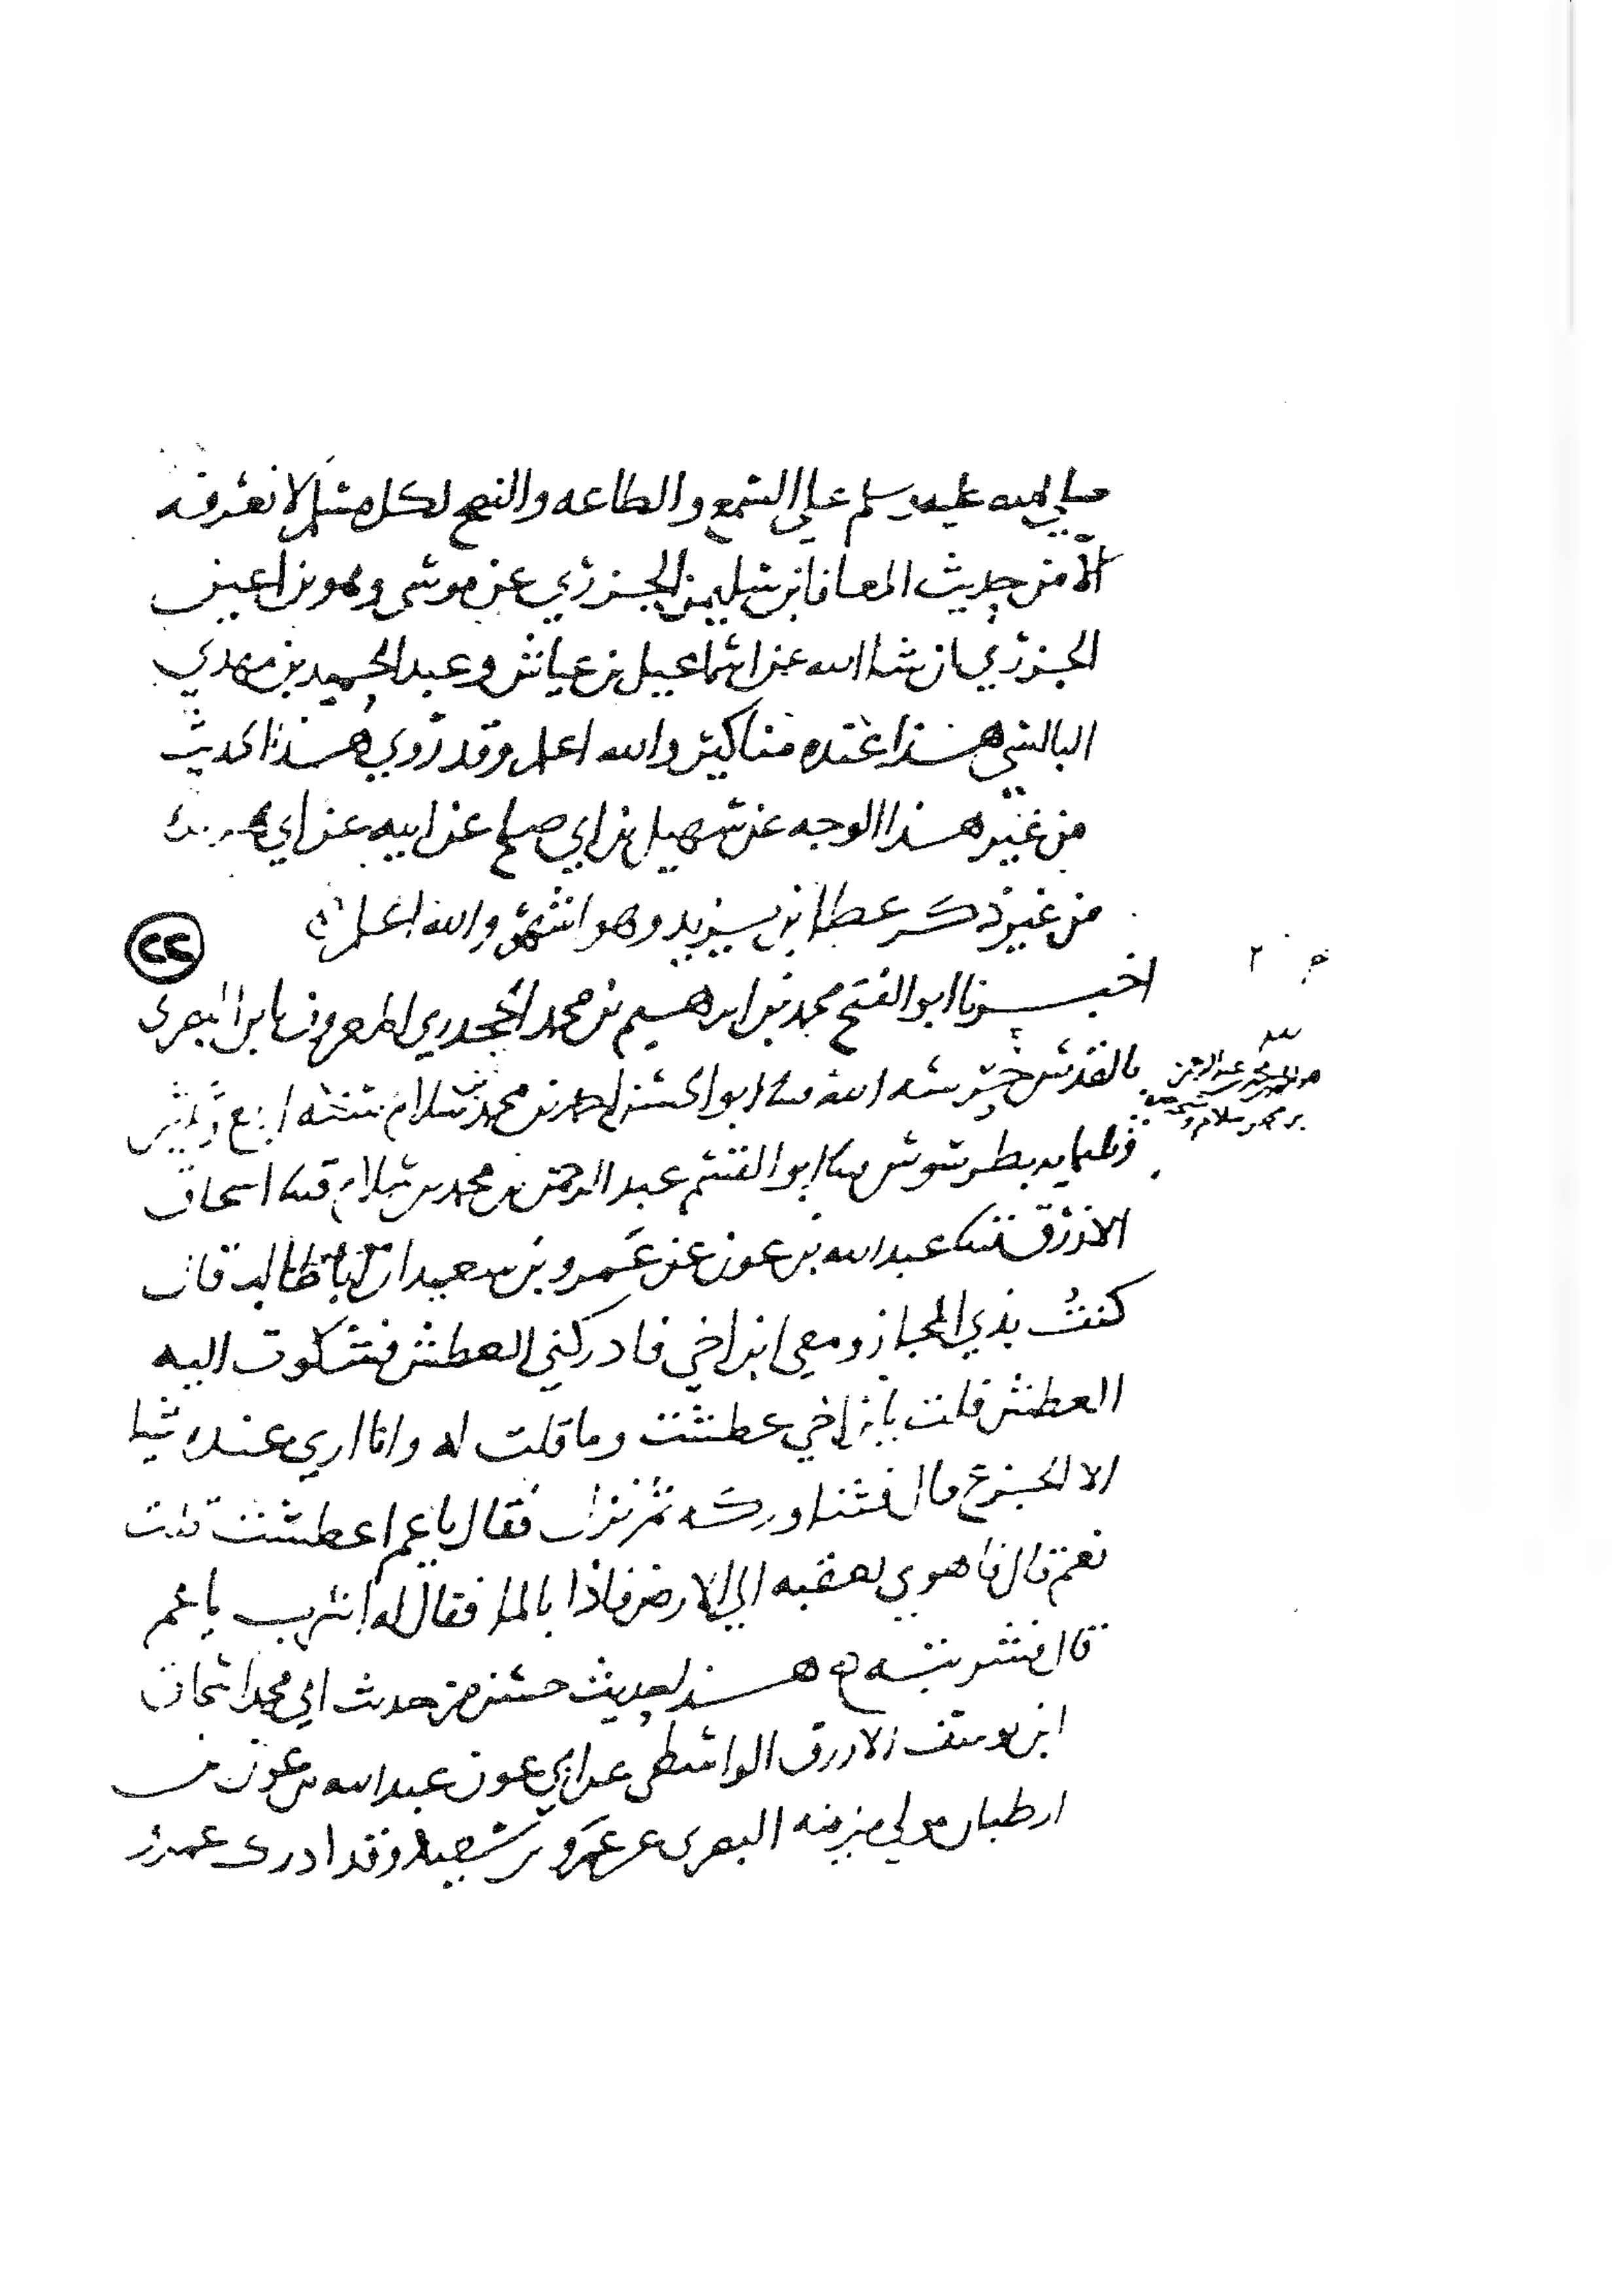 صلى الله عليه وسلم على السمع والطاعه والنصح لكل مسلم لا نعرفه
الا من حديث المعافا بن سليمن الجزري عن موسى وهو بن اعين
الجزري ان شا الله عن اسماعيل بن عياش وعبد الحميد بن مهدي
البالسي هذا عنده مناكير والله اعلم وقد روي هذا الحديث
من غير هذا الوجه عن سهيل بن ابي صلح عن ابيه عن ابي هريرة
من غير ذكر عطا بن يزيد وهو اشهر والله اعلم
٢٢
اخبرنا ابو الفتح محمد بن ابرهيم بن محمد الجحدري المعروف بابن البصرى
بالقدس حرسه الله ابو الحسن احمد بن محمد بن سلام سنه اربع وثلثين
وثلثمايه بطرسوس ابو القسم عبد الرحمن بن محمد بن سلام اسحاق
الازرق عبد الله بن عون عن عمرو بن سعيد ان ابا طالب قال
كنت بذي المجاز ومعي ابن اخي فادركني العطش فشكوت اليه
العطش فقلت يابن اخي عطشت وما قلت له وانا ارى عنده شيا
الا الجزع قال فثنا وركه ثم نزل فقال ياعم اعطشت قلت
نعم قال فاهوى بعقبه الى الارض فاذا بالما فقال له اشرب ياعم
قال فشربته هذا حديث حسن من حديث ابي محمد اسحاق
ابن يوسف الازرق الواسطي عن ابي عون عبد الله بن عون بن
ارطبان مولى مزينه البصرى عن عمرو بن سعيد وقد ادرك عمرو